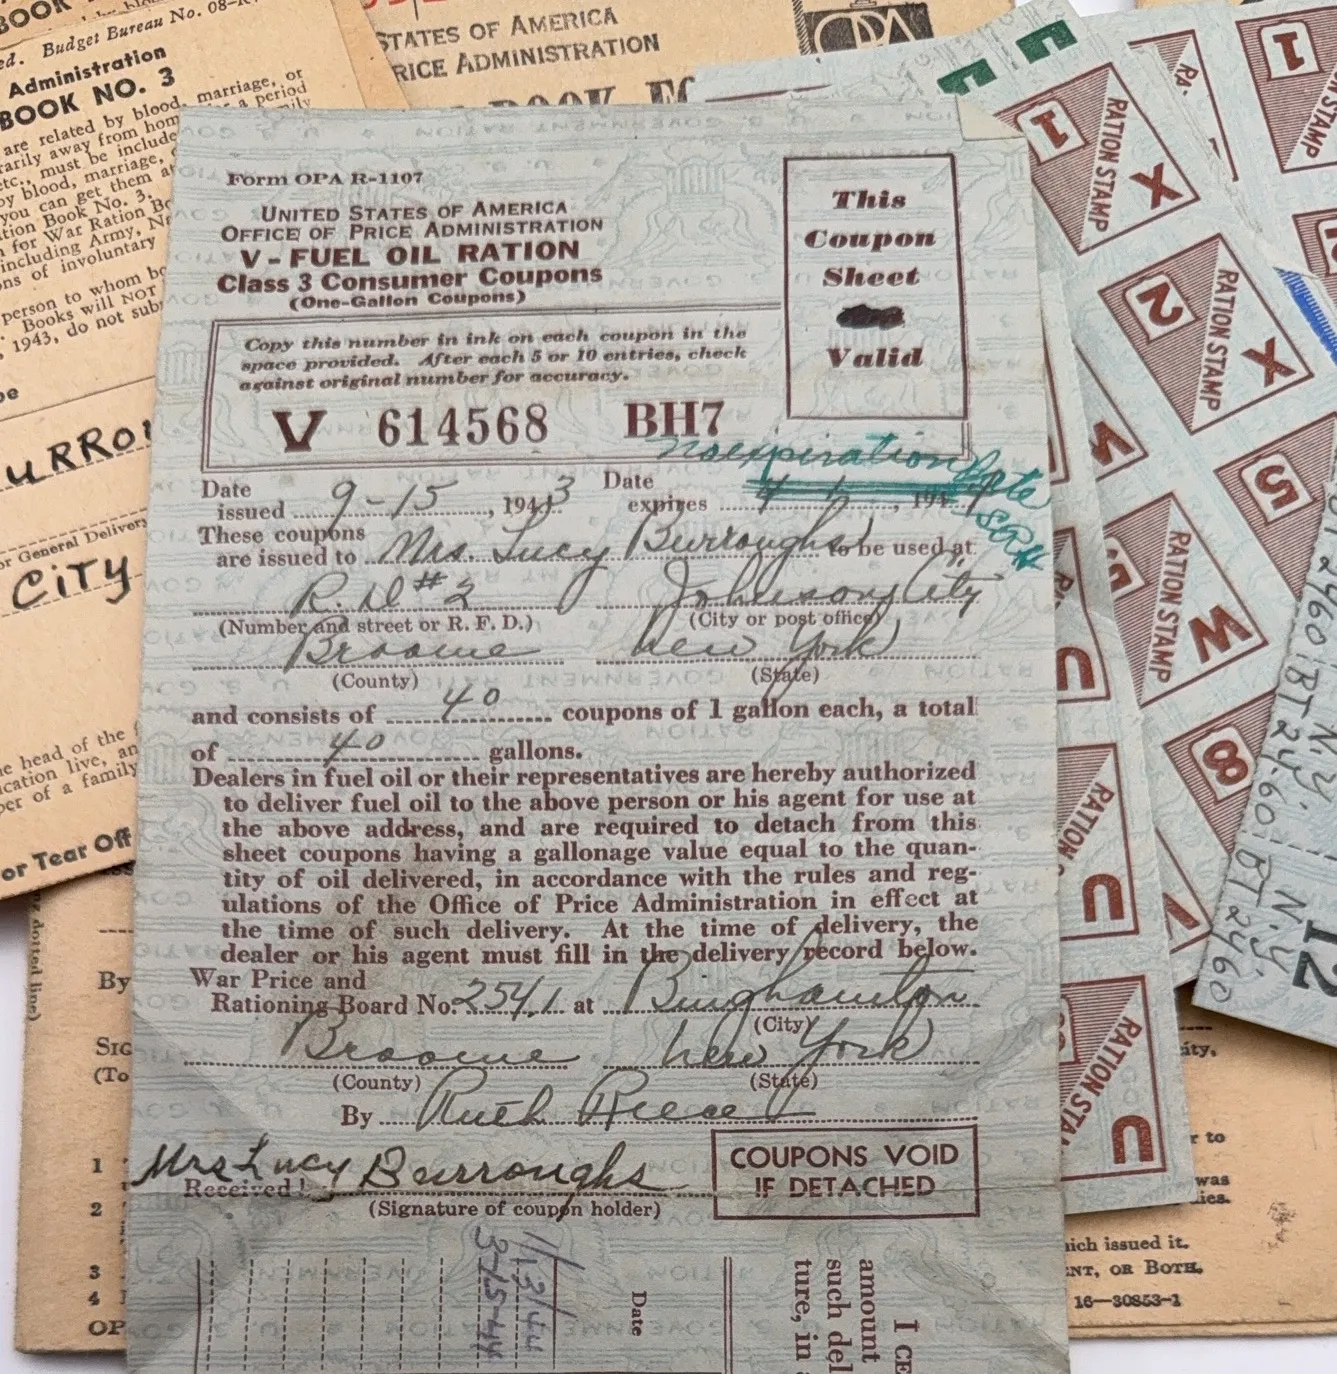 BOOK
ed. Budget Bureau No. 08-R
Administration
BOOK NO. 3
are related by blood, marriage, or
rarily away from hom
for a period
family
etc., must be include
by blood, marriage,
you can get them a
tion Book No. 3.
for War Ration Bo
including Army, Na
ons of involuntary
person to whom bo
Books will NOT
1943, do not sub
URRO
or General Delivery
CITY
he head of the f
cation live, an
ber of a family
or Tear Off
dotted line)
By
SIG
(To
1
2
3
4
OP
STATES OF AMERICA
PRICE ADMINISTRATION
BOOK FO
OPA
Form OPA R-1107
UNITED STATES OF AMERICA
OFFICE OF PRICE ADMINISTRATION
V - FUEL OIL RATION
Class 3 Consumer Coupons
(One-Gallon Coupons)
This
Coupon
Sheet
Valid
Copy this number in ink on each coupon in the
space provided. After each 5 or 10 entries, check
against original number for accuracy.
V 614568 BH7
No expiration Date
Date issued 9-15, 1943 Date expires 194
These coupons
are issued to Mrs. Lucy Burroughs to be used at:
R. D #2 Johnson City
(Number and street or R. F. D.) (City or post office)
Broome New York
(County) (State)
and consists of 40 coupons of 1 gallon each, a total
of 40 gallons.
Dealers in fuel oil or their representatives are hereby authorized
to deliver fuel oil to the above person or his agent for use at
the above address, and are required to detach from this
sheet coupons having a gallonage value equal to the quan-
tity of oil delivered, in accordance with the rules and reg-
ulations of the Office of Price Administration in effect at
the time of such delivery. At the time of delivery, the
dealer or his agent must fill in the delivery record below.
War Price and
Rationing Board No. 254.1 at Binghamton
(City)
Broome New York
(County) (State)
By Ruth Reece
Mrs Lucy Burroughs
Received!
(Signature of coupon holder)
COUPONS VOID
IF DETACHED
Date
1/13/44
3-15-44
I CE
amount
such del
ture, in
1
RATION STAMP
X
2
RATION STAMP
X
1
RATION STAMP
5
W
RATION STAMP
W
8
U
RATION
U
RATION STA
U
BT 2460
N.Y.
BT 2460
N.Y.
BT 2460
12
ity,
r to
was
ies.
hich issued it.
NT, OR BOTH.
16—30853-1